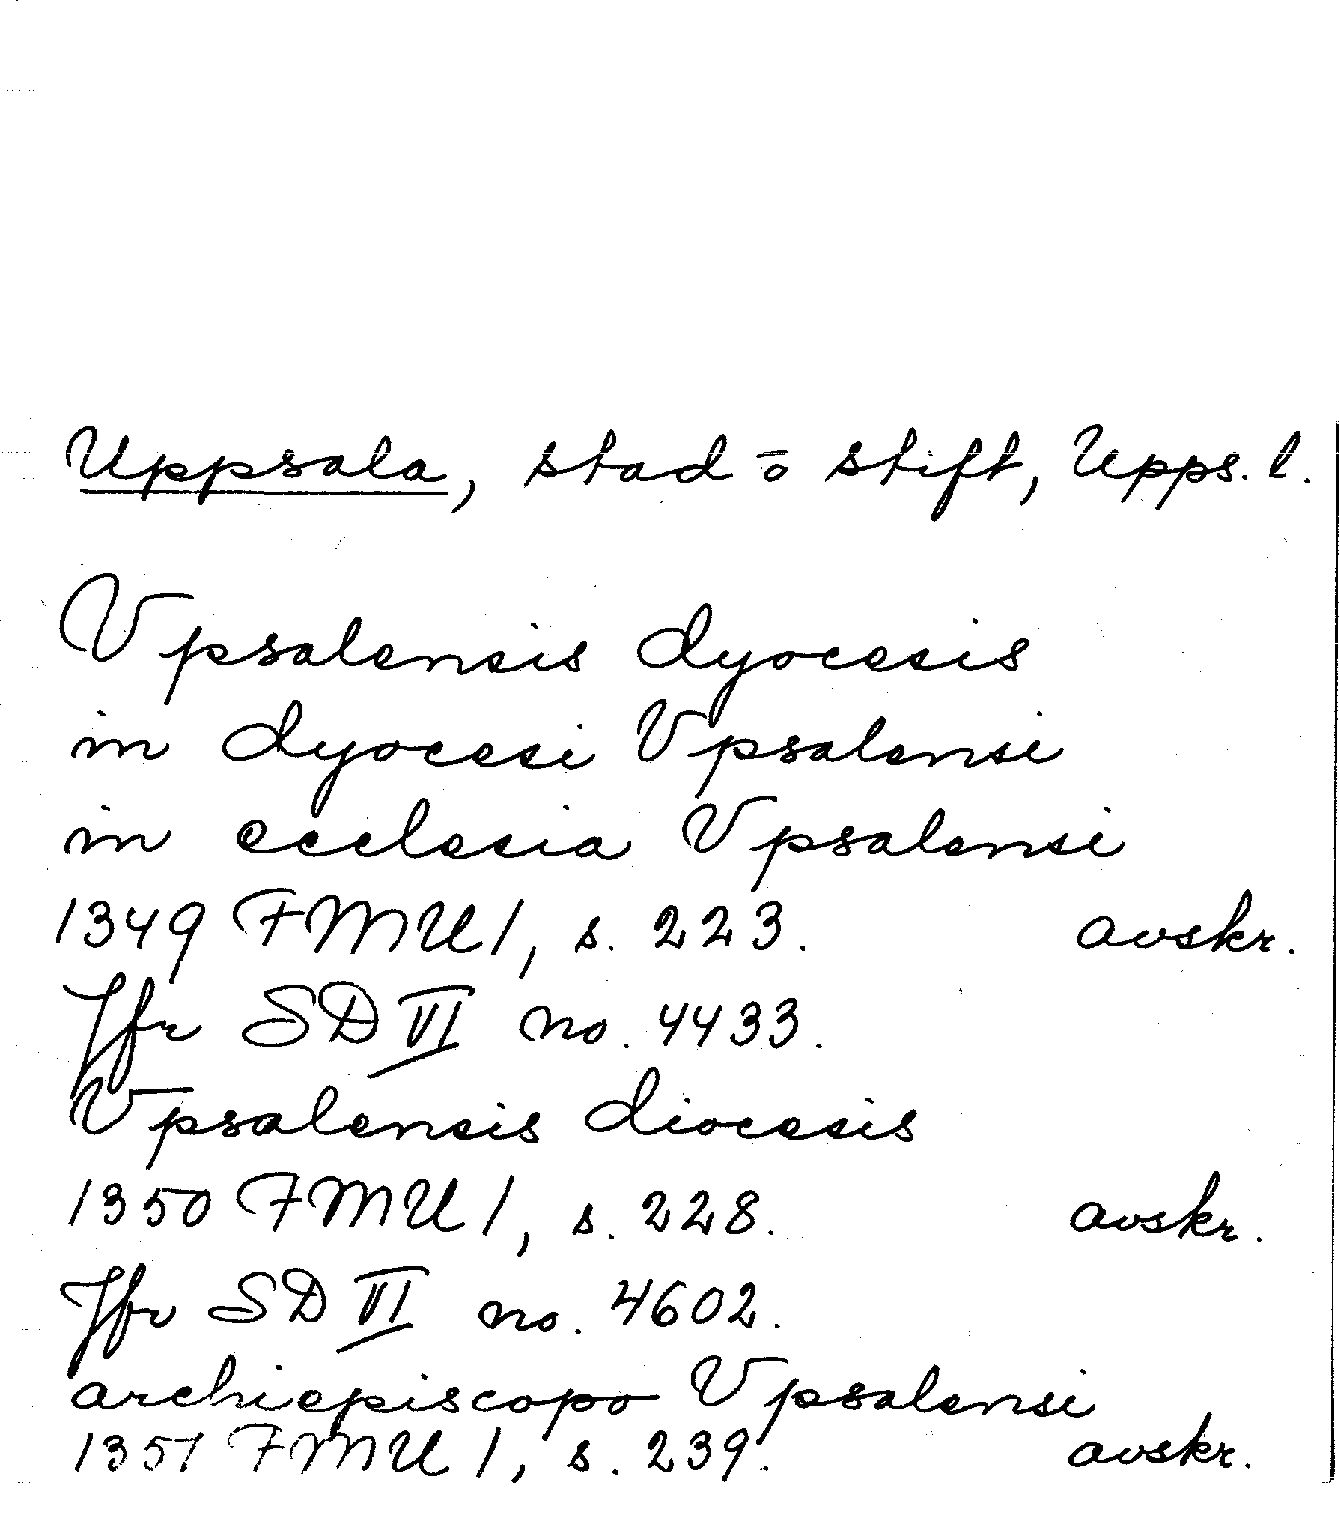 Uppsala, stad o stift, Upps. l.
Vpsalensis dyocesis
in dyocesi Vpsalensi
in ecclesia Vpsalensi
1349 FMU 1, s. 223. avskr.
Jfr SD VI no. 4433.
Vpsalensis diocesis
1350 FMU 1, s. 228. avskr.
Jfr SD VI no. 4602.
archiepiscopo Vpsalensi
1351 FMU 1, s. 239. avskr.